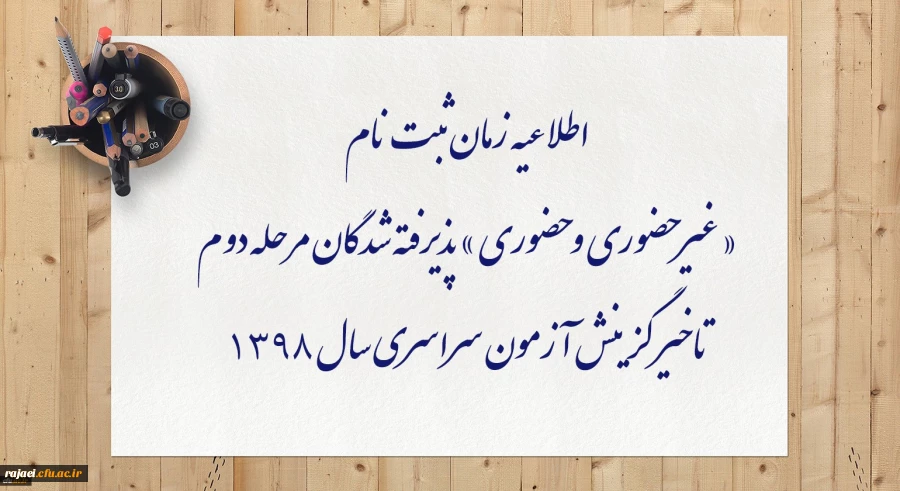 اطلاعیه زمان ثبت نام
« غیرحضوری و حضوری » پذیرفته شدگان مرحله دوم
تاخیر گزینش آزمون سراسری سال ۱۳۹۸
30
03
rajaei.cfu.ac.ir